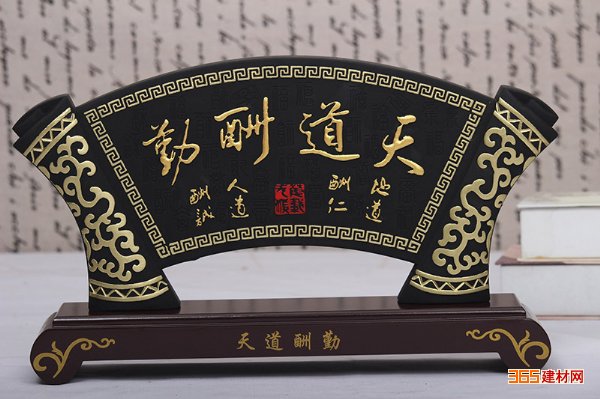 天道酬勤
地道
酬仁
人道
酬誠
天道酬勤
365建材网